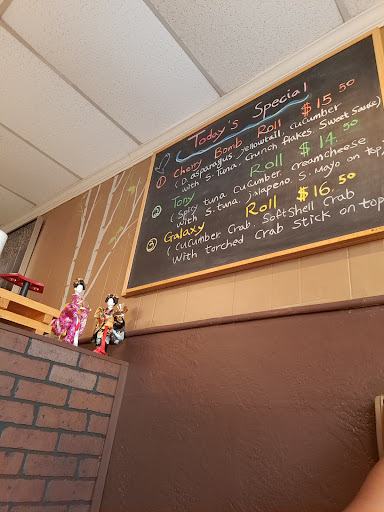 Today's Special
① Cherry Bomb Roll $15.50
(D. asparagus, yellowtail, cucumber
with S. tuna, crunch flakes, sweet sauce)
② Tony Roll $14.50
(Spicy tuna cucumber, creamcheese
with S. tuna, jalapeno, S. mayo on top)
③ Galaxy Roll $16.50
(Cucumber Crab, Soft Shell Crab
With torched Crab stick on top